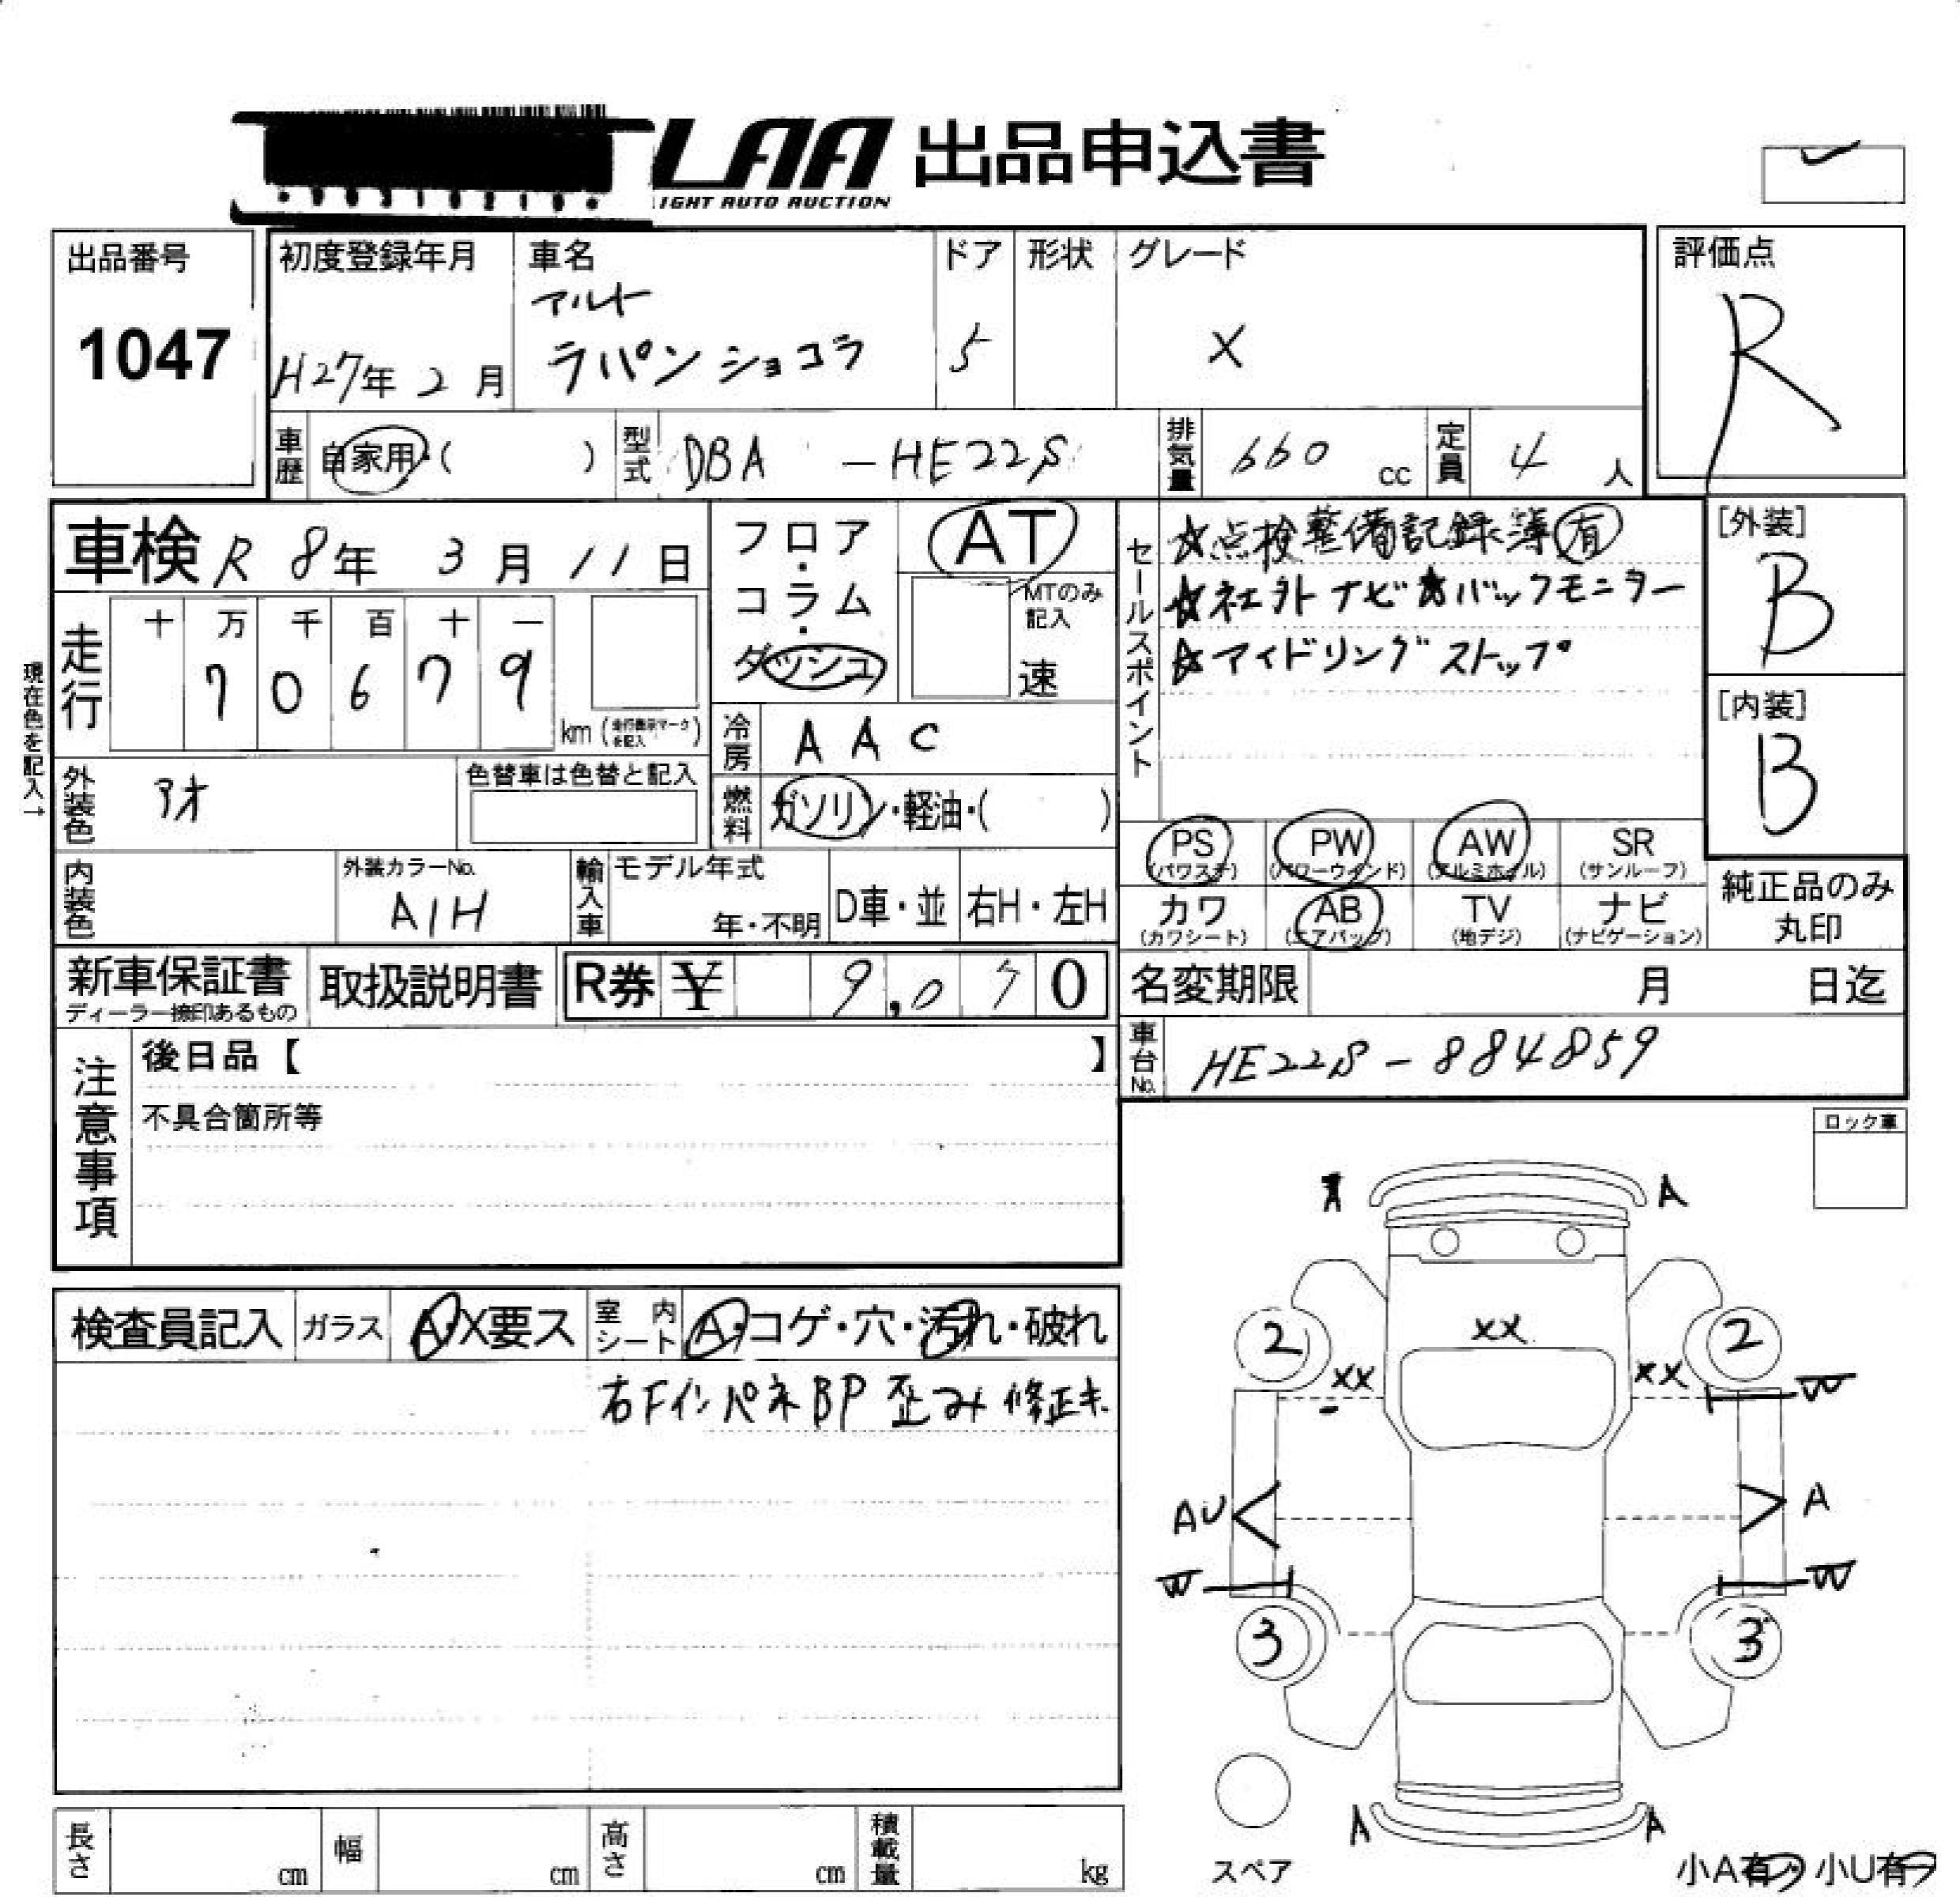 LAA 出品申込書
LIGHT AUTO AUCTION
出品番号
1047
初度登録年月
H27年 2月
車名
アルト
ラパンショコラ
ドア
5
形状
グレード
X
評価点
R
車歴 自家用・( )
型式 DBA - HE22S
排気量 660 cc
定員 4 人
車検 R 8年 3月 11日
フロア・コラム・ダッシュ
AT
MTのみ記入
速
セールスポイント
☆点検整備記録簿有
☆社外ナビ☆バックモニター
☆アイドリングストップ
[外装]
B
[内装]
B
現在色を記入→
走行
十 万 千 百 十 一
7 0 6 7 9
km (走行表示マークを記入)
冷房 AAC
外装色 アオ
色替車は色替と記入
燃料 ガソリン・軽油・( )
PS (パワステ)
PW (パワーウインド)
AW (アルミホイル)
SR (サンルーフ)
カワ (カワシート)
AB (エアバッグ)
TV (地デジ)
ナビ (ナビゲーション)
純正品のみ
丸印
内装色
外装カラーNo.
A1H
輸入車
モデル年式
年・不明
D車・並
右H・左H
新車保証書
ディーラー捺印あるもの
取扱説明書
R券 ¥ 9,070
名変期限 月 日迄
車台No. HE22S-884859
注意事項
後日品【 】
不具合箇所等
ロック車
検査員記入
ガラス A・X要ス
室内シート A・コゲ・穴・汚れ・破れ
右Fインパネ BP 歪み 修正キ
A
A
2
XX
2
XX
XX
W
AU
A
W
W
3
3
A
A
スペア
小A有 小U有
長さ cm
幅 cm
高さ cm
積載量 kg